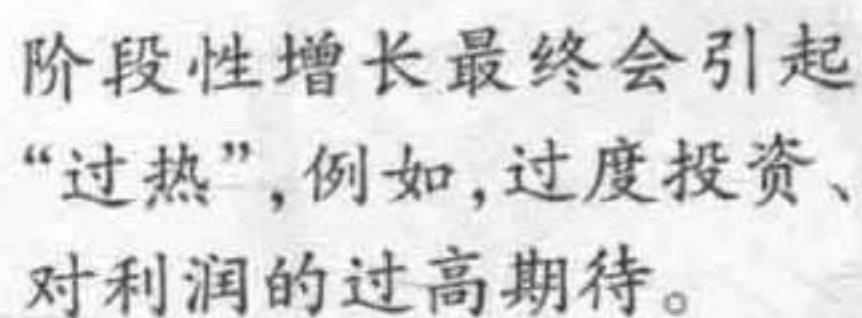 阶段性增长最终会引起
“过热”,例如,过度投资、
对利润的过高期待。